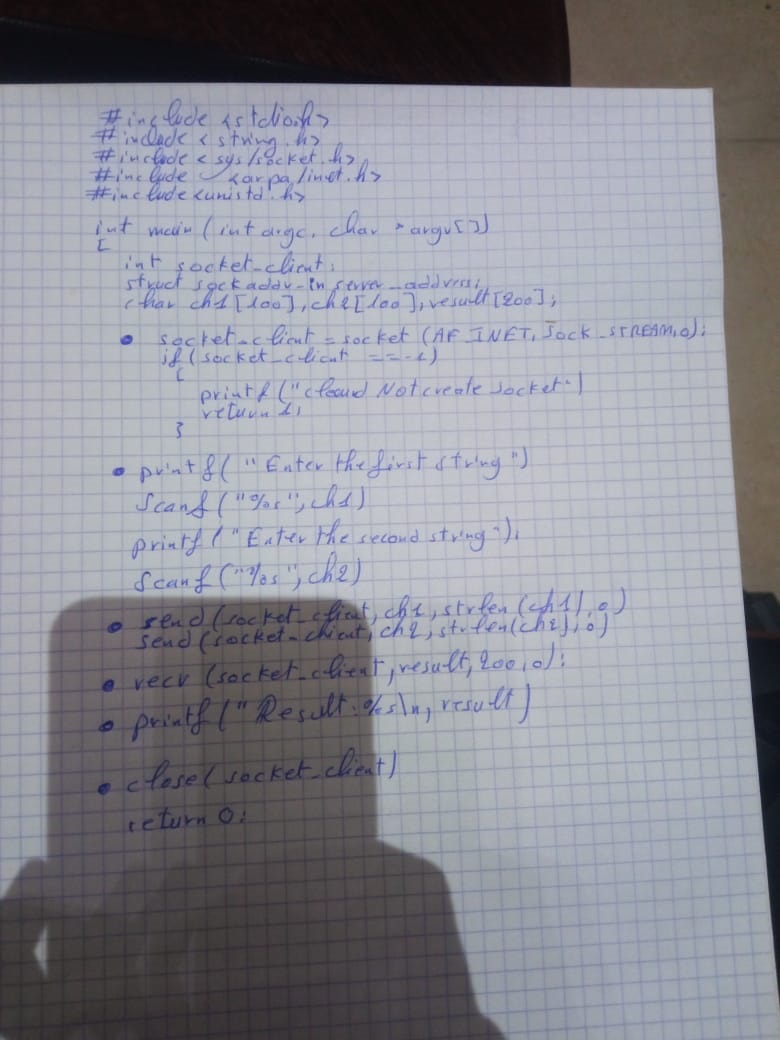 #include <stdio.h>
#include < string.h>
#include < sys/socket.h>
#include <arpa/inet.h>
#include <unistd.h>
int main (int argc, char * argv[])
{
int socket_client;
struct sockaddr_in server_address;
char ch1[100], ch2[100], result[200];
• socket_client = socket (AF_INET, Sock_STREAM, 0);
if (socket_client == -1)
{
printf ("could Not create socket")
return 1;
}
• printf( "Enter the first string")
Scanf ("%s", ch1)
printf ( "Enter the second string");
Scanf ("%s", ch2)
• send (socket_client, ch1, strlen (ch1), 0)
send (socket_client, ch2, strlen(ch2), 0)
• recv (socket_client, result, 200, 0);
• printf ("Result:%s\n, result)
• close( socket_client)
return 0;